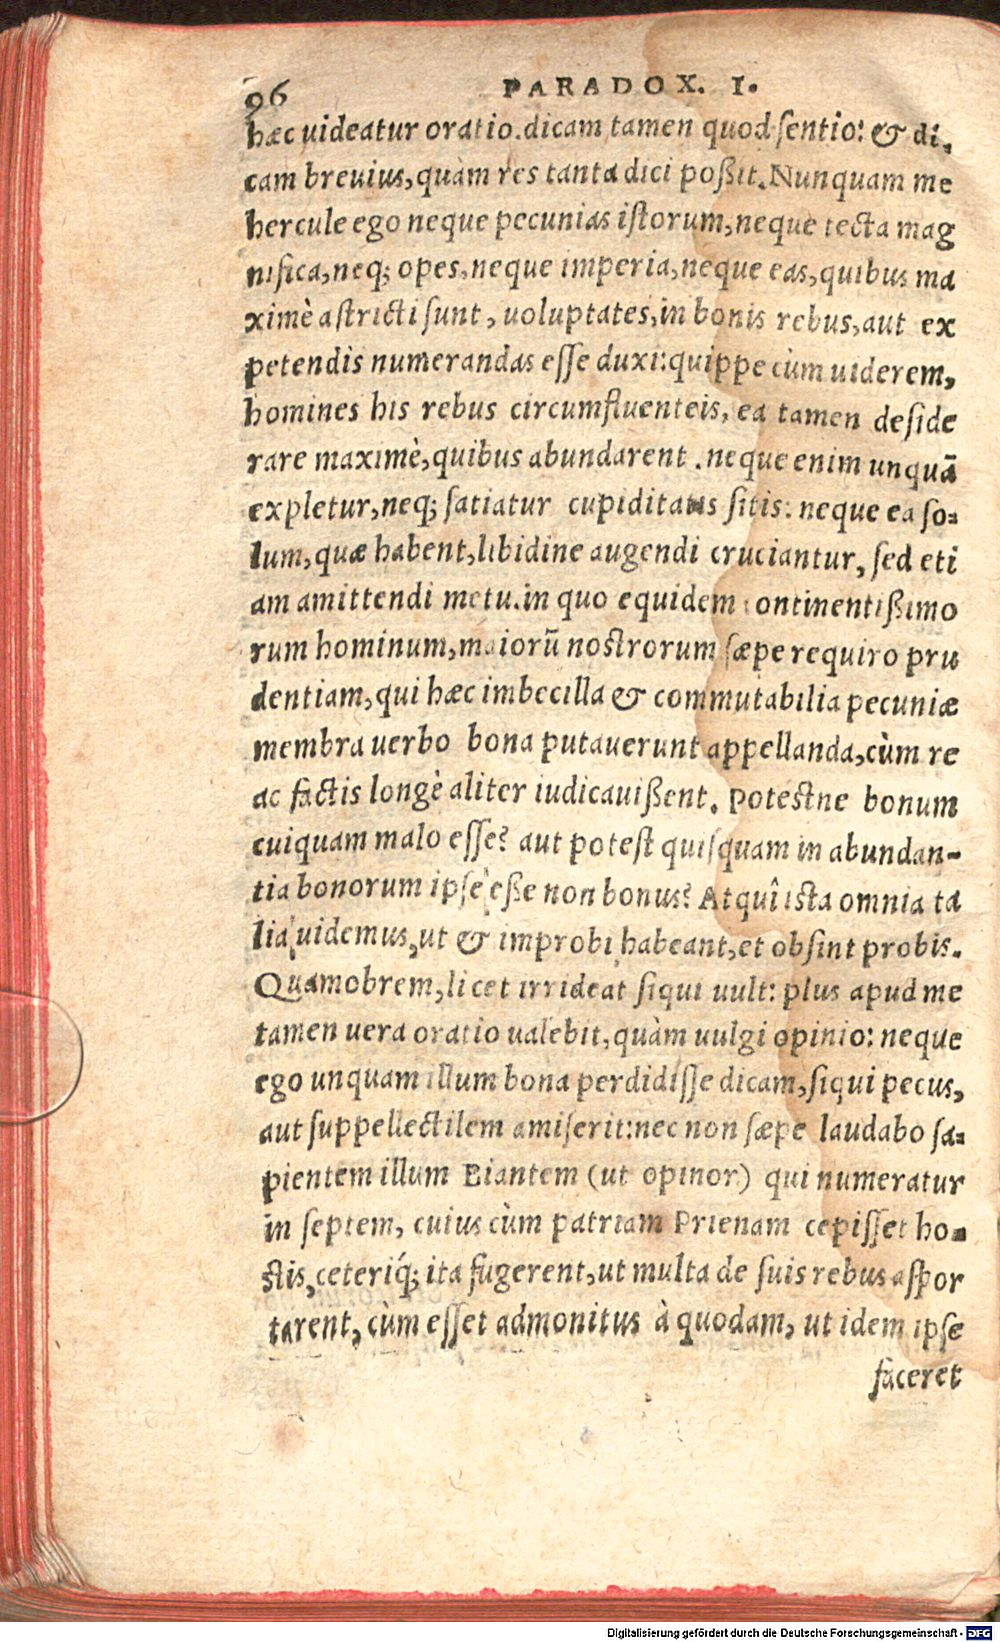 96 PARADOX. I.
hæc uideatur oratio.dicam tamen quod sentio: & di.
cam breuius,quàm res tanta dici poßit.Nunquam me
hercule ego neque pecunias istorum,neque tecta mag
nifica,neq; opes,neque imperia,neque eas,quibus ma
ximè astricti sunt, uoluptates,in bonis rebus,aut ex
petendis numerandas esse duxi:quippe cùm uiderem,
homines his rebus circumfluenteis, ea tamen deside
rare maximè,quibus abundarent .neque enim unquā
expletur,neq; satiatur cupiditatis sitis: neque ea so-
lum,quæ habent,libidine augendi cruciantur, sed eti
am amittendi metu.in quo equidem continentißimo
rum hominum,maiorū nostrorum sæpe requiro pru
dentiam,qui hæc imbecilla & commutabilia pecuniæ
membra uerbo bona putauerunt appellanda,cùm re
ac factis longè aliter iudicauißent. Potestne bonum
cuiquam malo esse? aut potest quisquam in abundan-
tia bonorum ipse eße non bonus? Atquî ista omnia ta
lia uidemus,ut & improbi habeant,et obsint probis.
Quamobrem,licet irrideat siqui uult: plus apud me
tamen uera oratio ualebit,quàm uulgi opinio: neque
ego unquam illum bona perdidisse dicam,siqui pecus,
aut suppellectilem amiserit:nec non sæpe laudabo sa-
pientem illum Biantem (ut opinor) qui numeratur
in septem, cuius cùm patriam Prienam cepisset ho-
stis,ceteriq́; ita fugerent,ut multa de suis rebus aspor
tarent, cùm esset admonitus à quodam, ut idem ipse
faceret
Digitalisierung gefördert durch die Deutsche Forschungsgemeinschaft - DFG